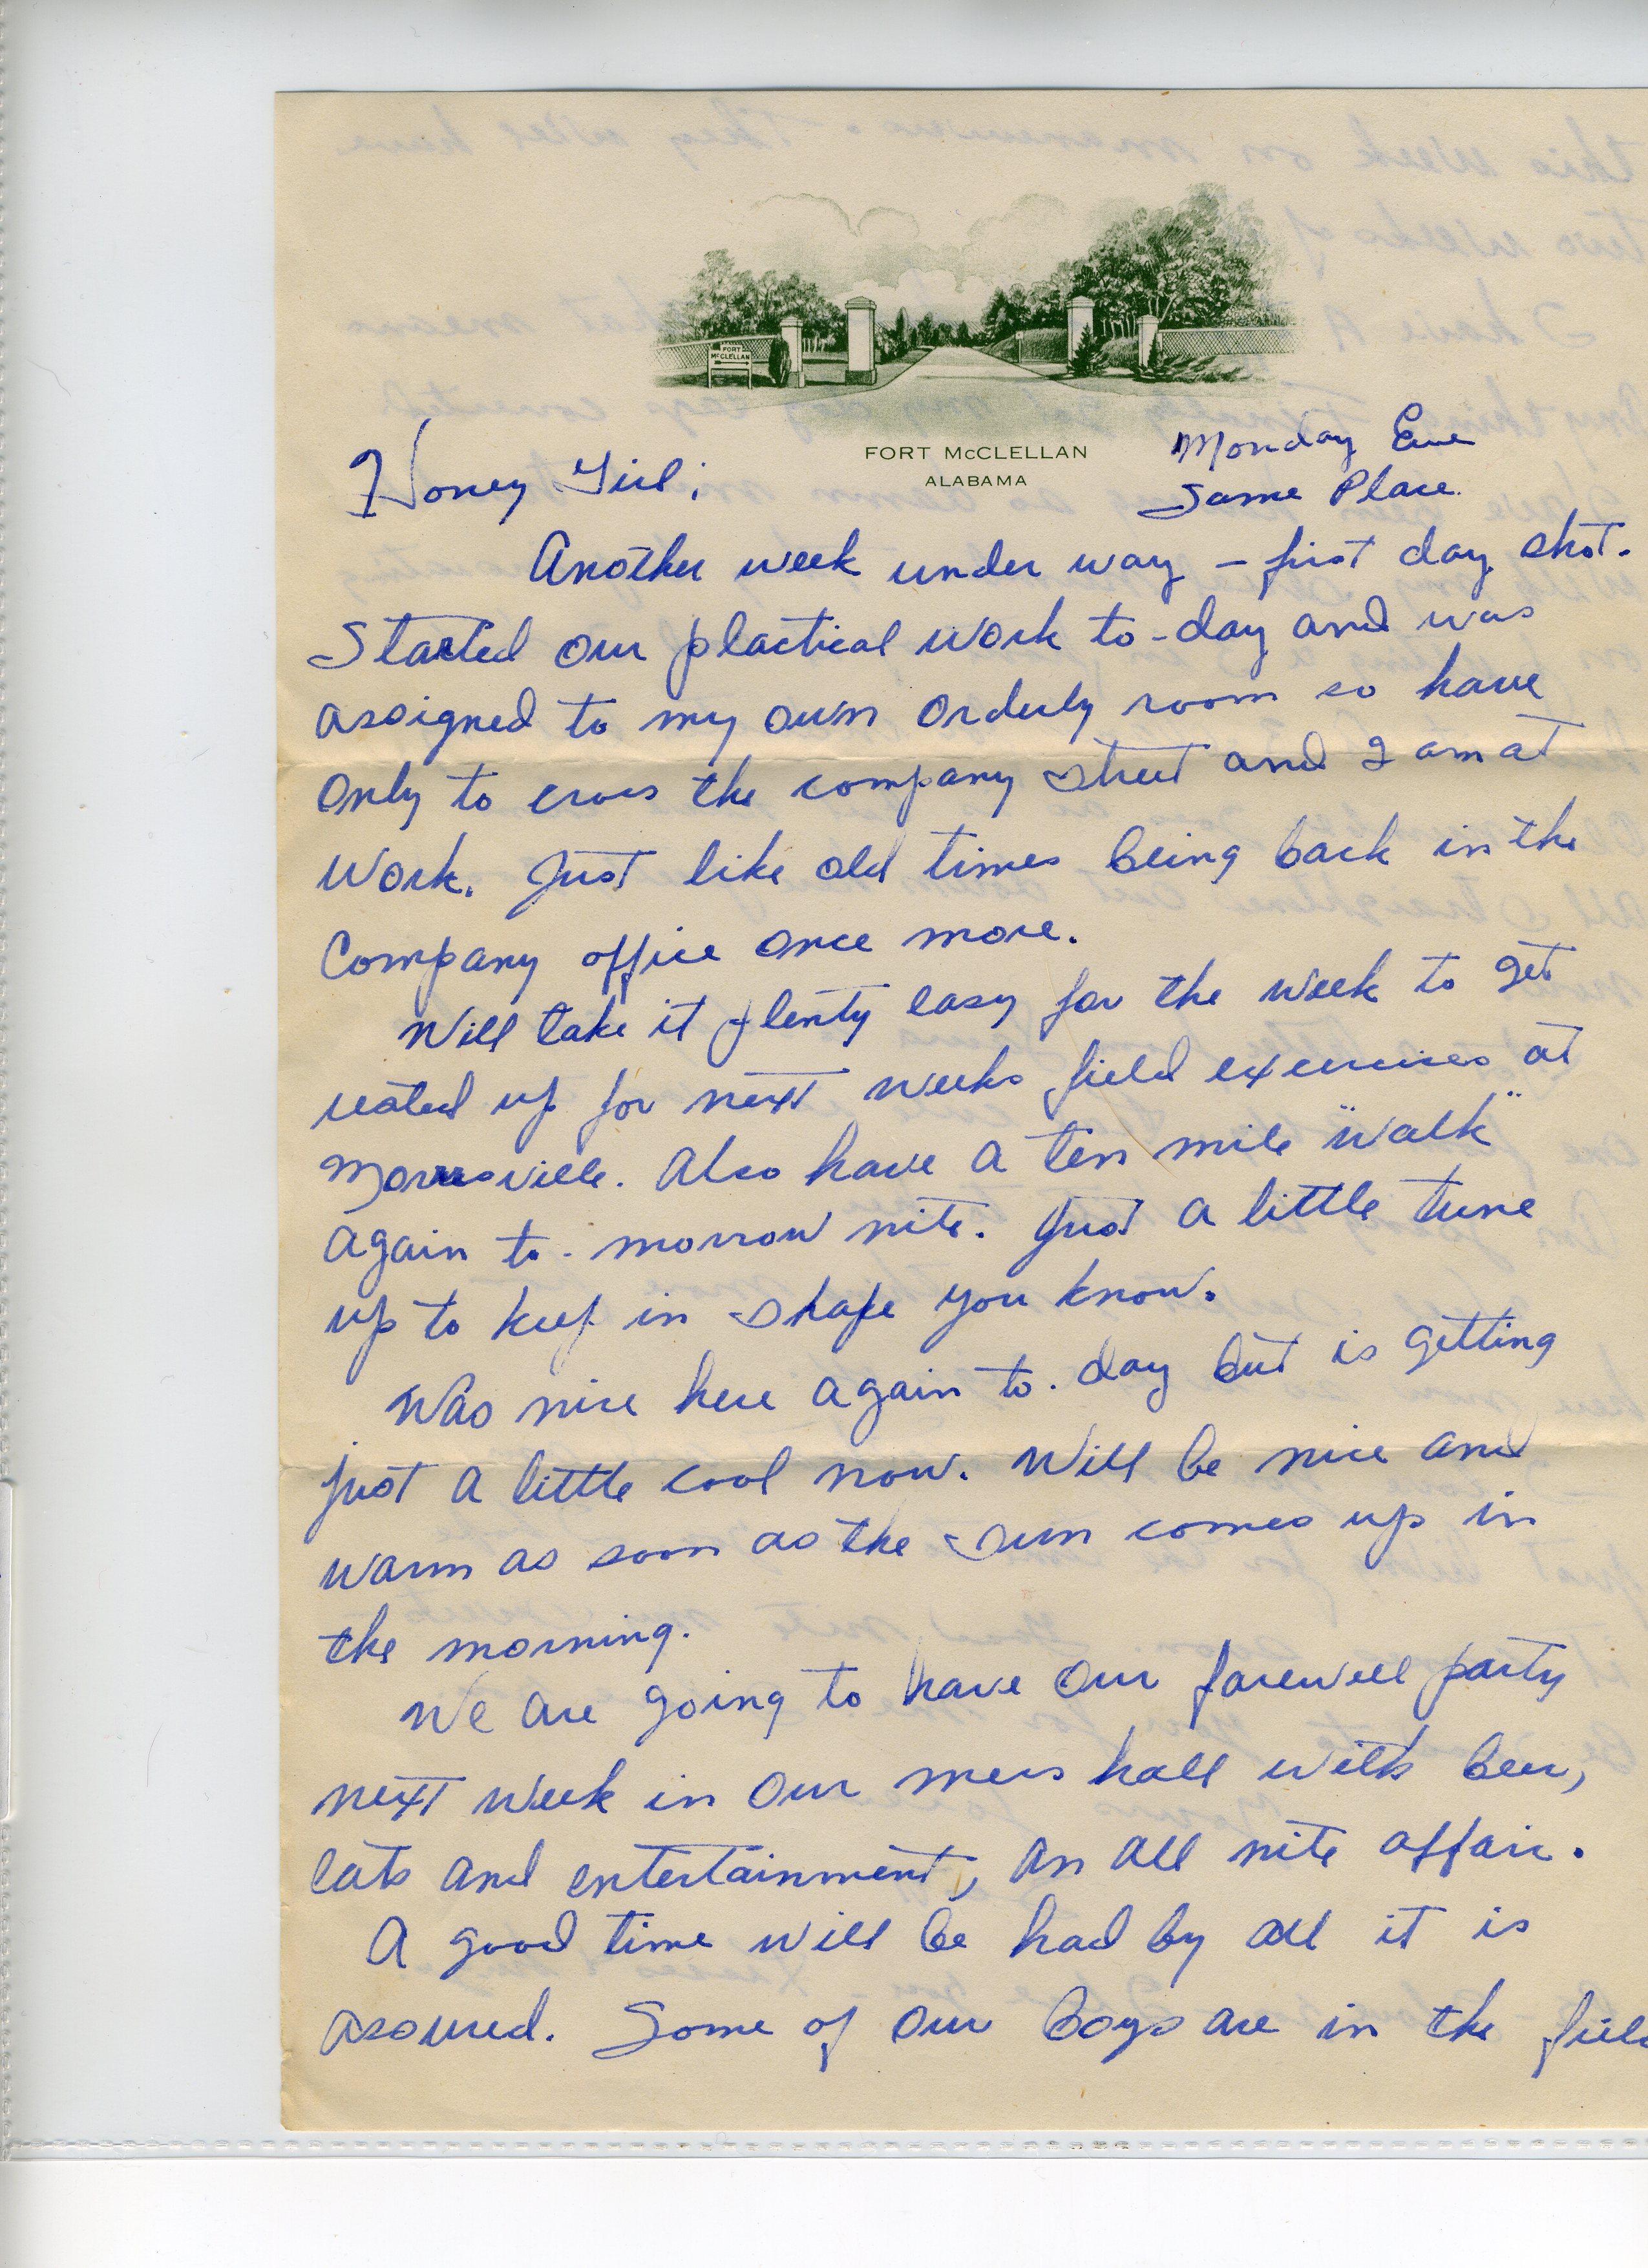 FORT
McCLELLAN
FORT McCLELLAN
ALABAMA
Monday Eve
Same Place.
Honey Girl;
Another week under way – first day shot.
Started our practical work to-day and was
assigned to my own orderly room so have
only to cross the company street and I am at
work. Just like old times being back in the
Company office once more.
Will take it plenty easy for the week to get
rested up for next weeks field exercises at
Morrisville. Also have a ten mile "walk"
again to-morrow nite. Just a little tune
up to keep in shape you know.
Was nice here again to-day but is getting
just a little cool now. Will be nice and
warm as soon as the sun comes up in
the morning.
We are going to have our farewell party
next week in our mess hall with beer,
eats and entertainment, an all nite affair.
A good time will be had by all it is
assured. Some of our boys are in the field